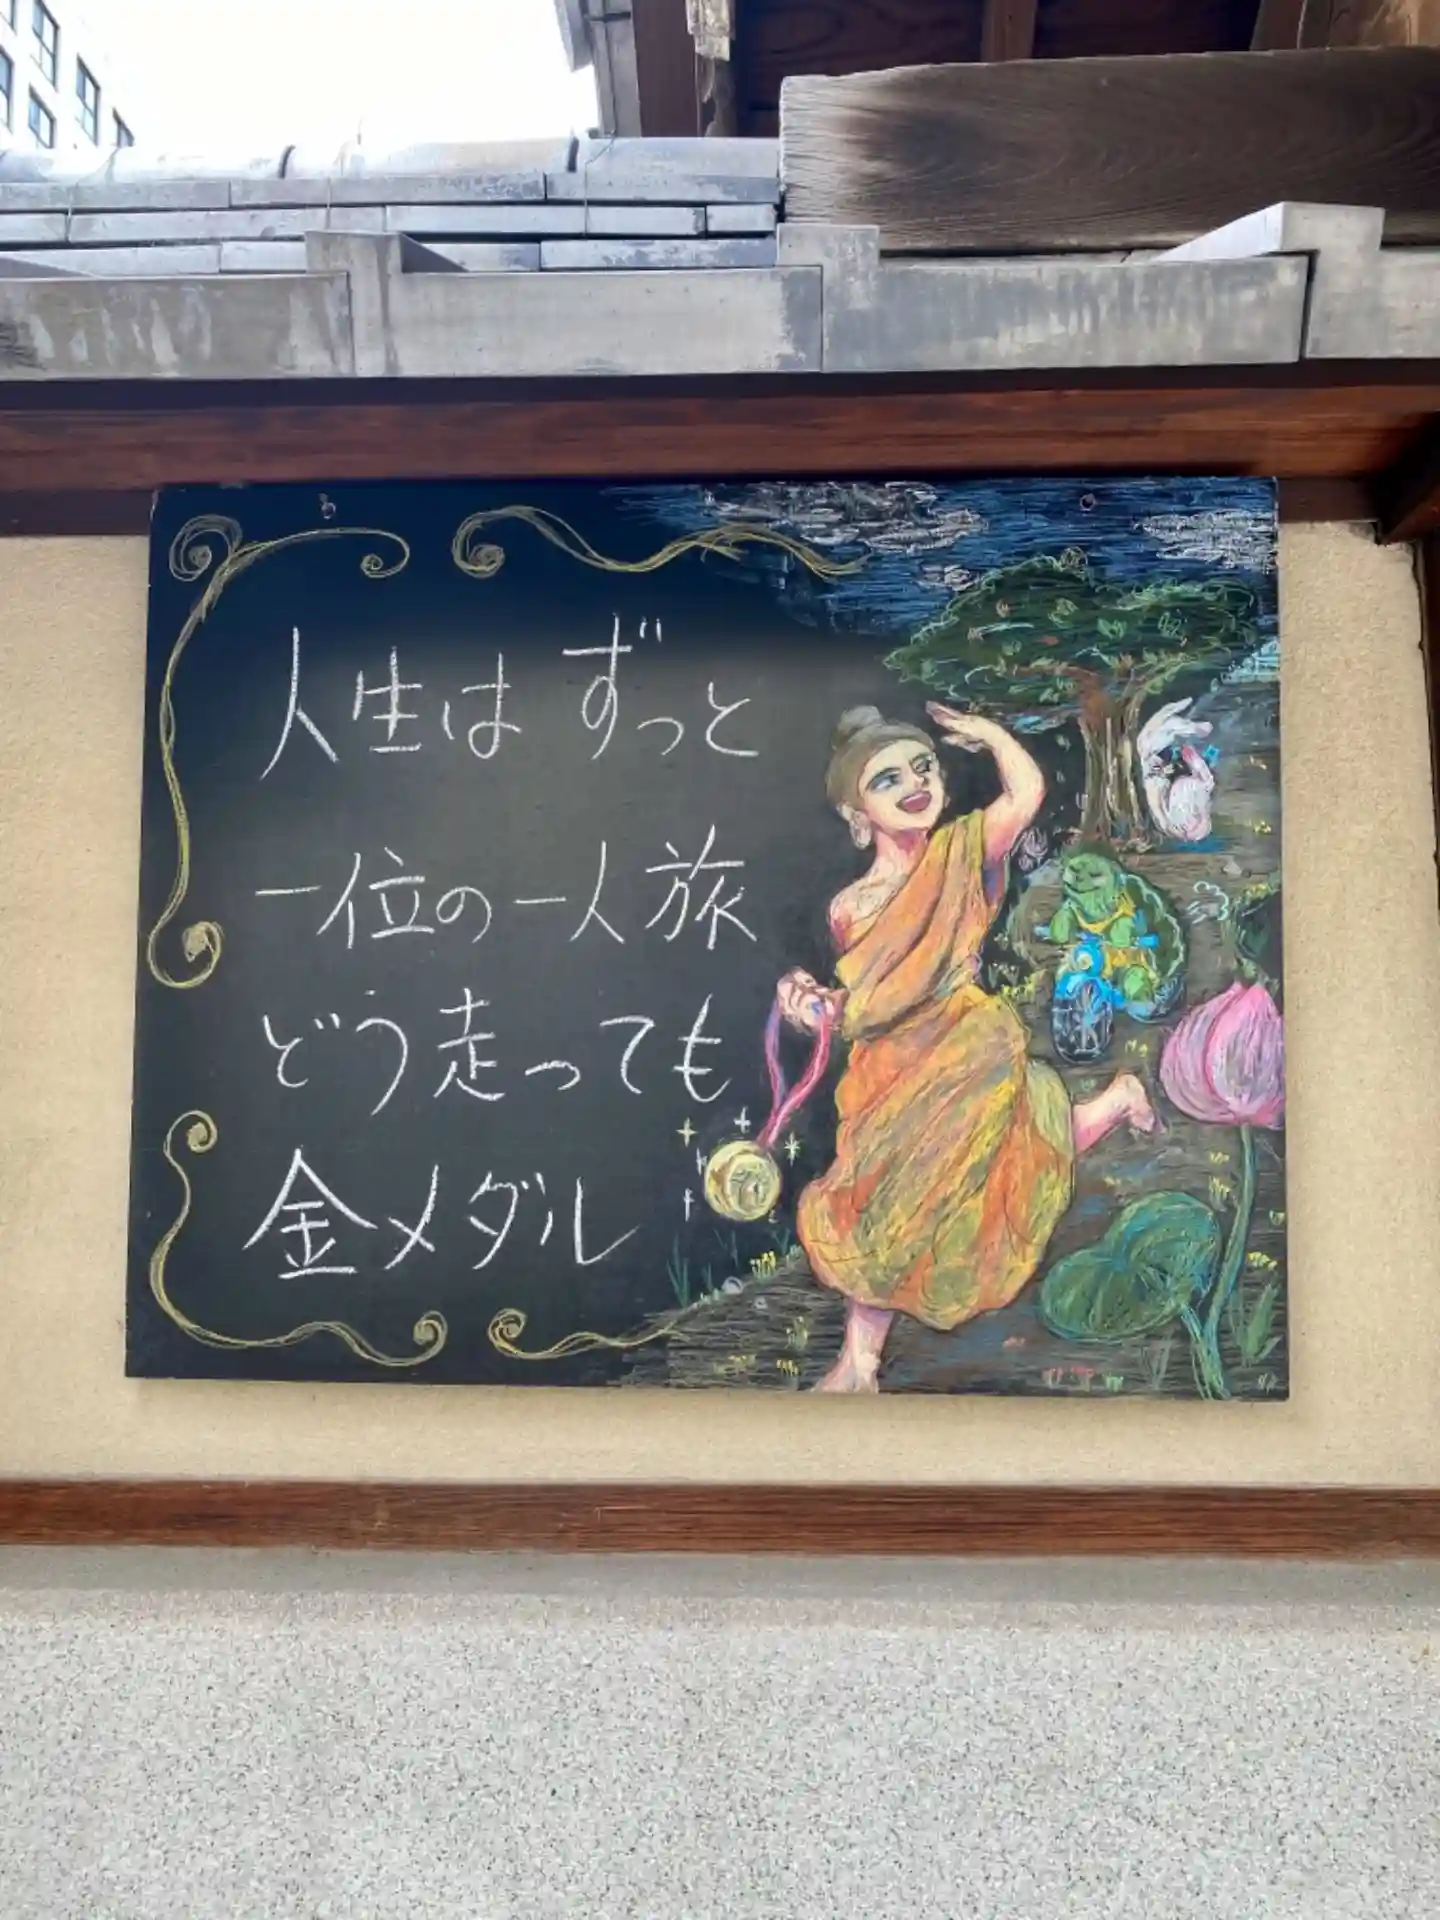 人生はずっと
一位の一人旅
どう走っても
金メダル